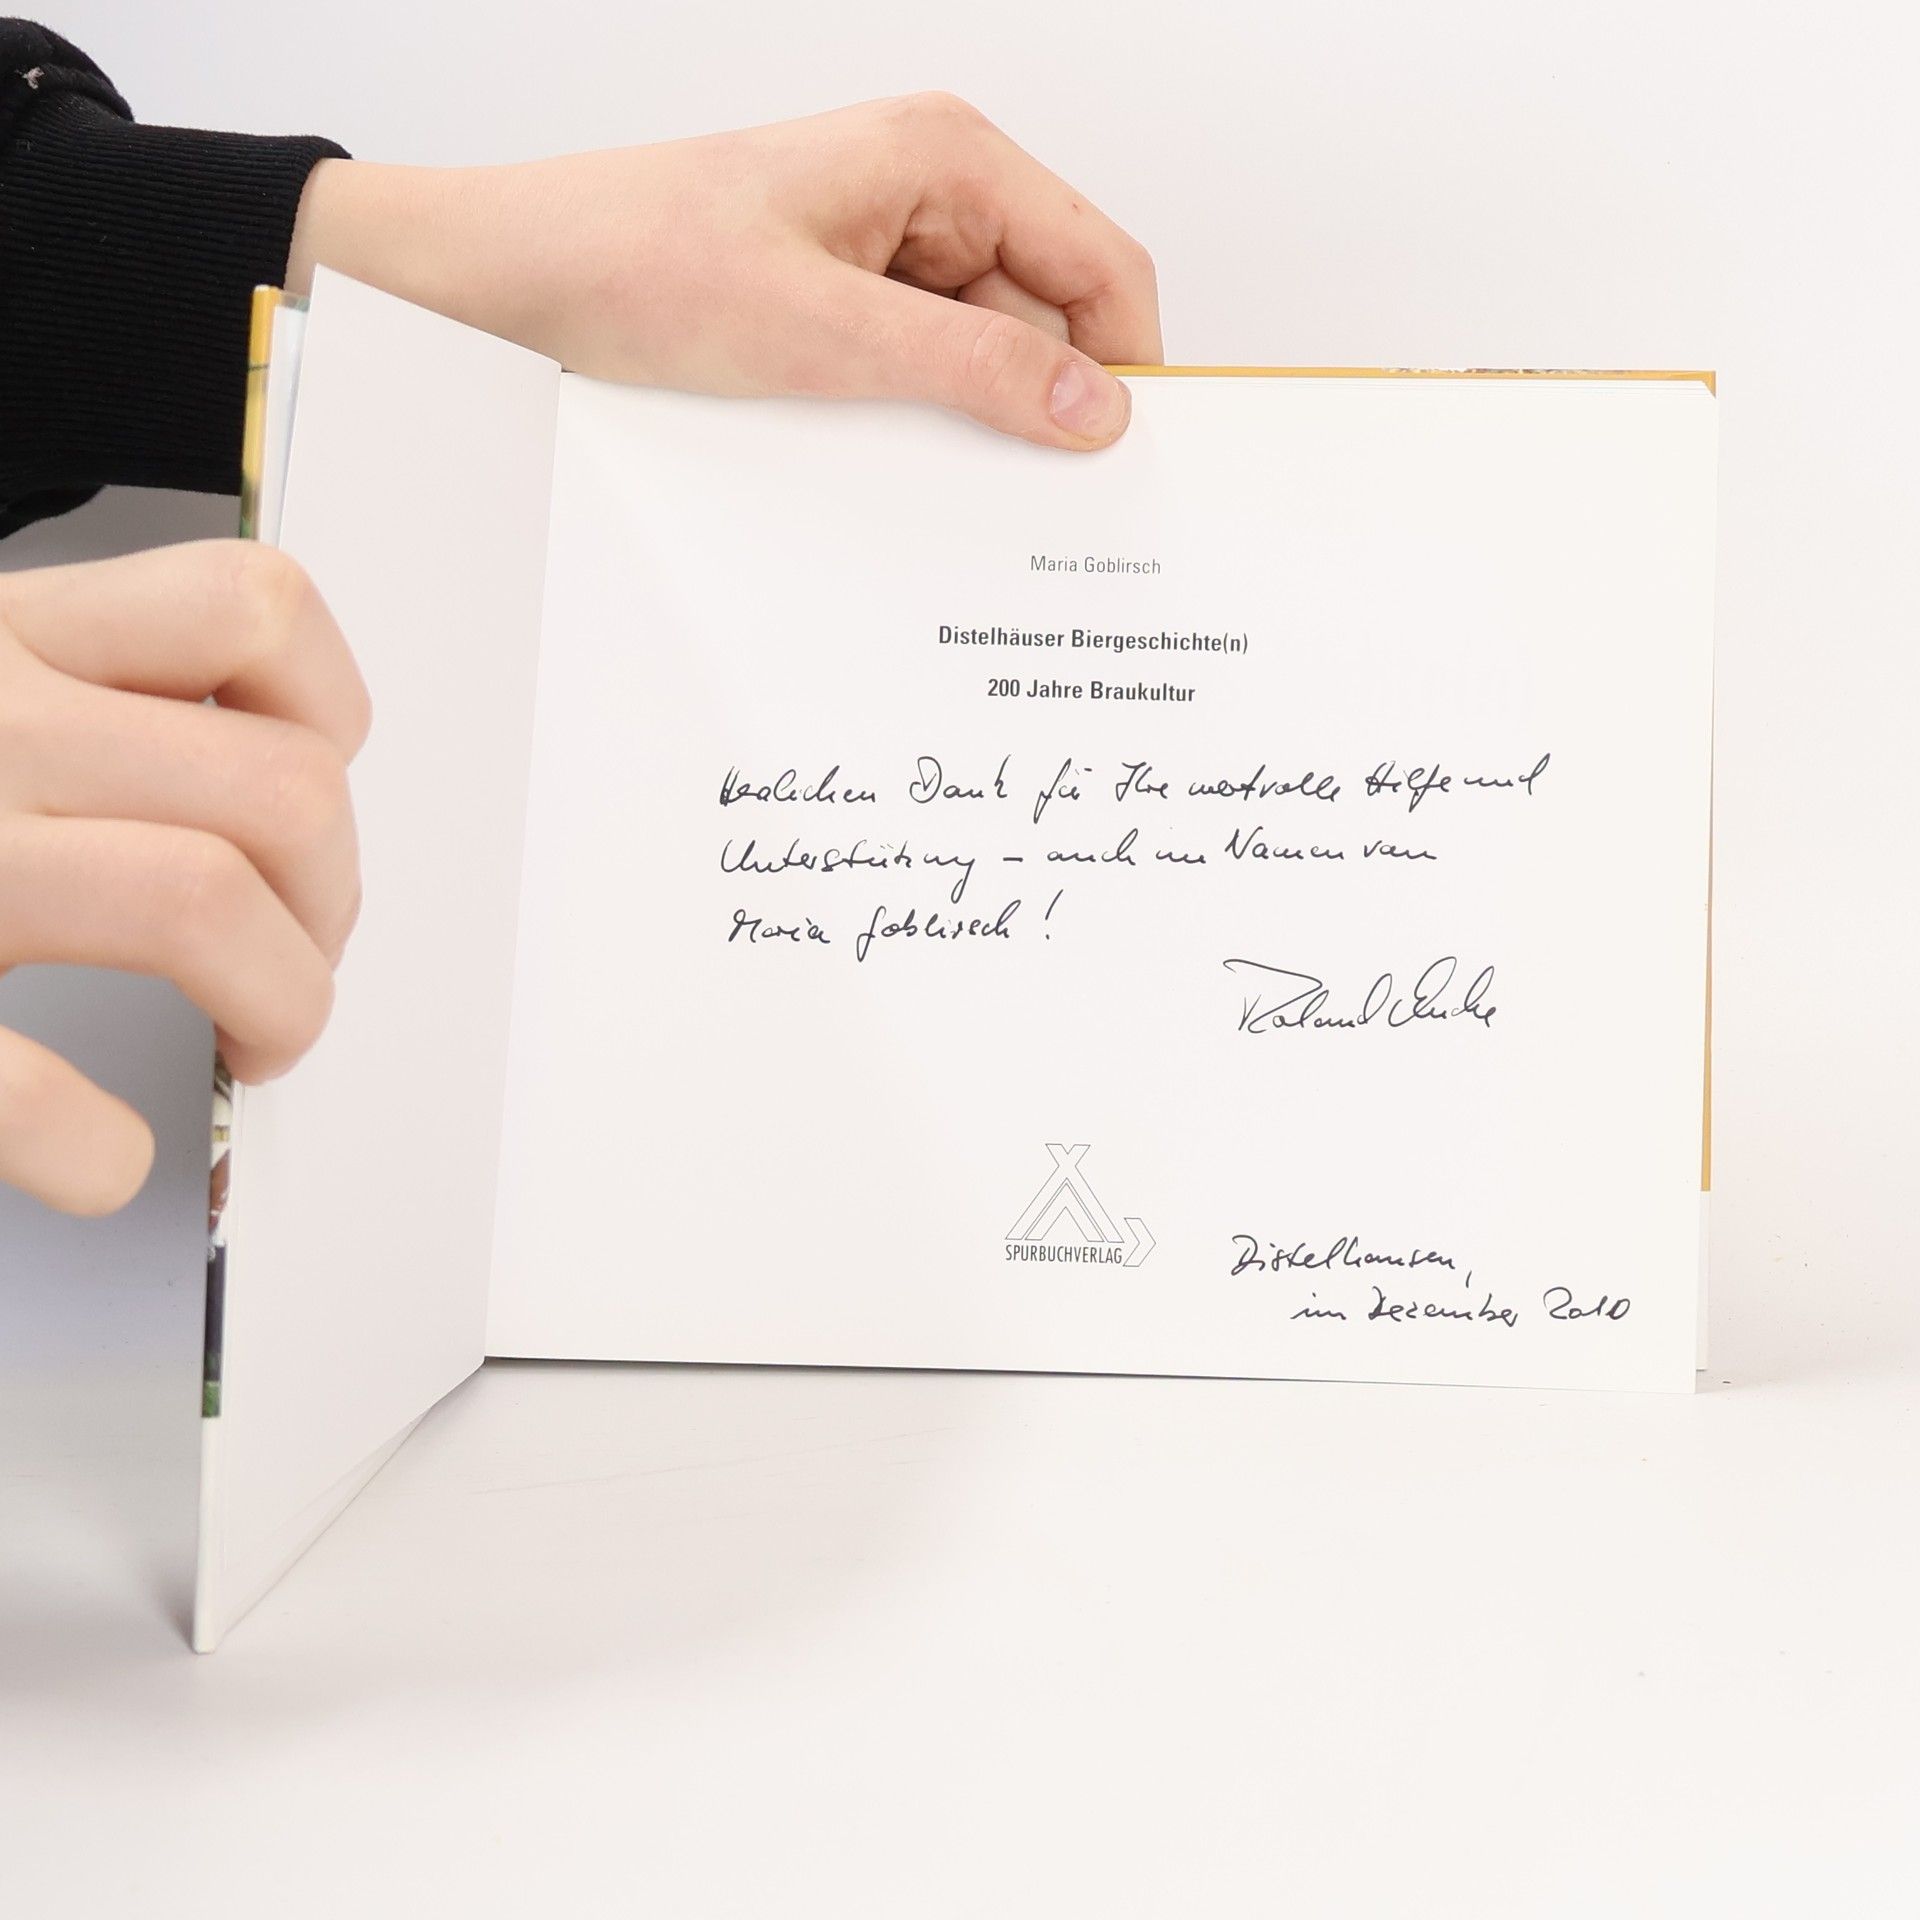 Maria Goblirsch
Distelhäuser Biergeschichte(n)
200 Jahre Braukultur
Herzlichen Dank für Ihre wertvolle Hilfe und
Unterstützung – auch im Namen von
Maria Goblirsch!
Roland
SPURBUCHVERLAG
Distelhausen,
im Dezember 2010